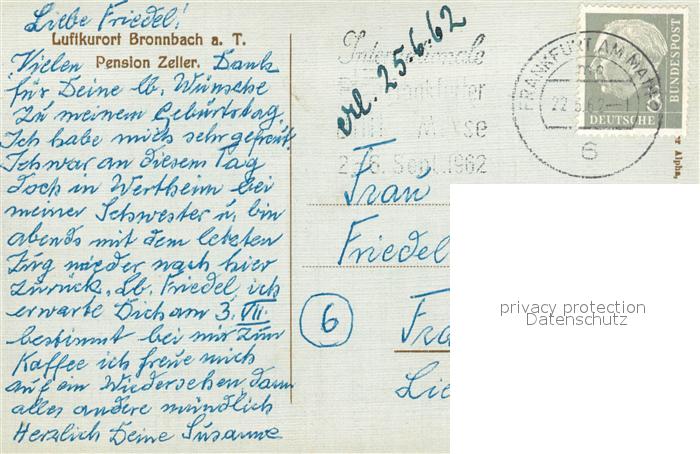 Liebe Friedel!
Luftkurort Bronnbach a. T.
Pension Zeller.
Vielen Dank
für Deine lb. Wünsche
zu meinem Geburtstag.
Ich habe mich sehr gefreut.
Ich war an diesem Tag
doch in Wertheim bei
meiner Schwester u. bin
abends mit dem letzten
Zug wieder nach hier
zurück. Lb. Friedel ich
erwarte Dich am 3. VII.
bestimmt bei mir zum
Kaffee ich freue mich
auf ein Wiedersehen, dann
alles andere mündlich
Herzlich Deine Susanne
erl. 25.6.62
Internationale
Frankfurter
Messe
2.-6. Sept. 1962
FRANKFURT AM MAIN
22.6.62
DEUTSCHE
BUNDESPOST
Frau
Friedel
6
Fra
Lie
privacy protection
Datenschutz